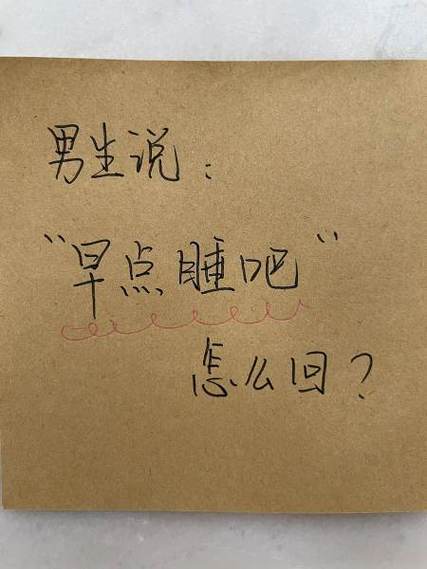 男生说：
“早点睡吧”
怎么回？